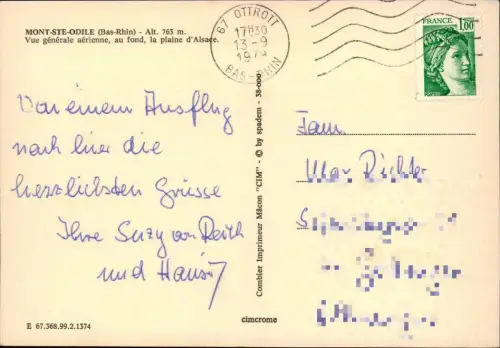 MONT-STE-ODILE (Bas-Rhin) - Alt. 763 m.
Vue générale aérienne, au fond, la plaine d'Alsace.
67 OTTROTT
17H30
13-9
BAS-RHIN
FRANCE
1,00
Von einem Ausflug
nach hier die
herzlichsten Grüsse
Ihre Suzy
und
Combier Imprimeur Mâcon "CIM" - © by spadem - 38-000
Fam.
Max Richter
E 67.368.99.2.1374
cimcrome